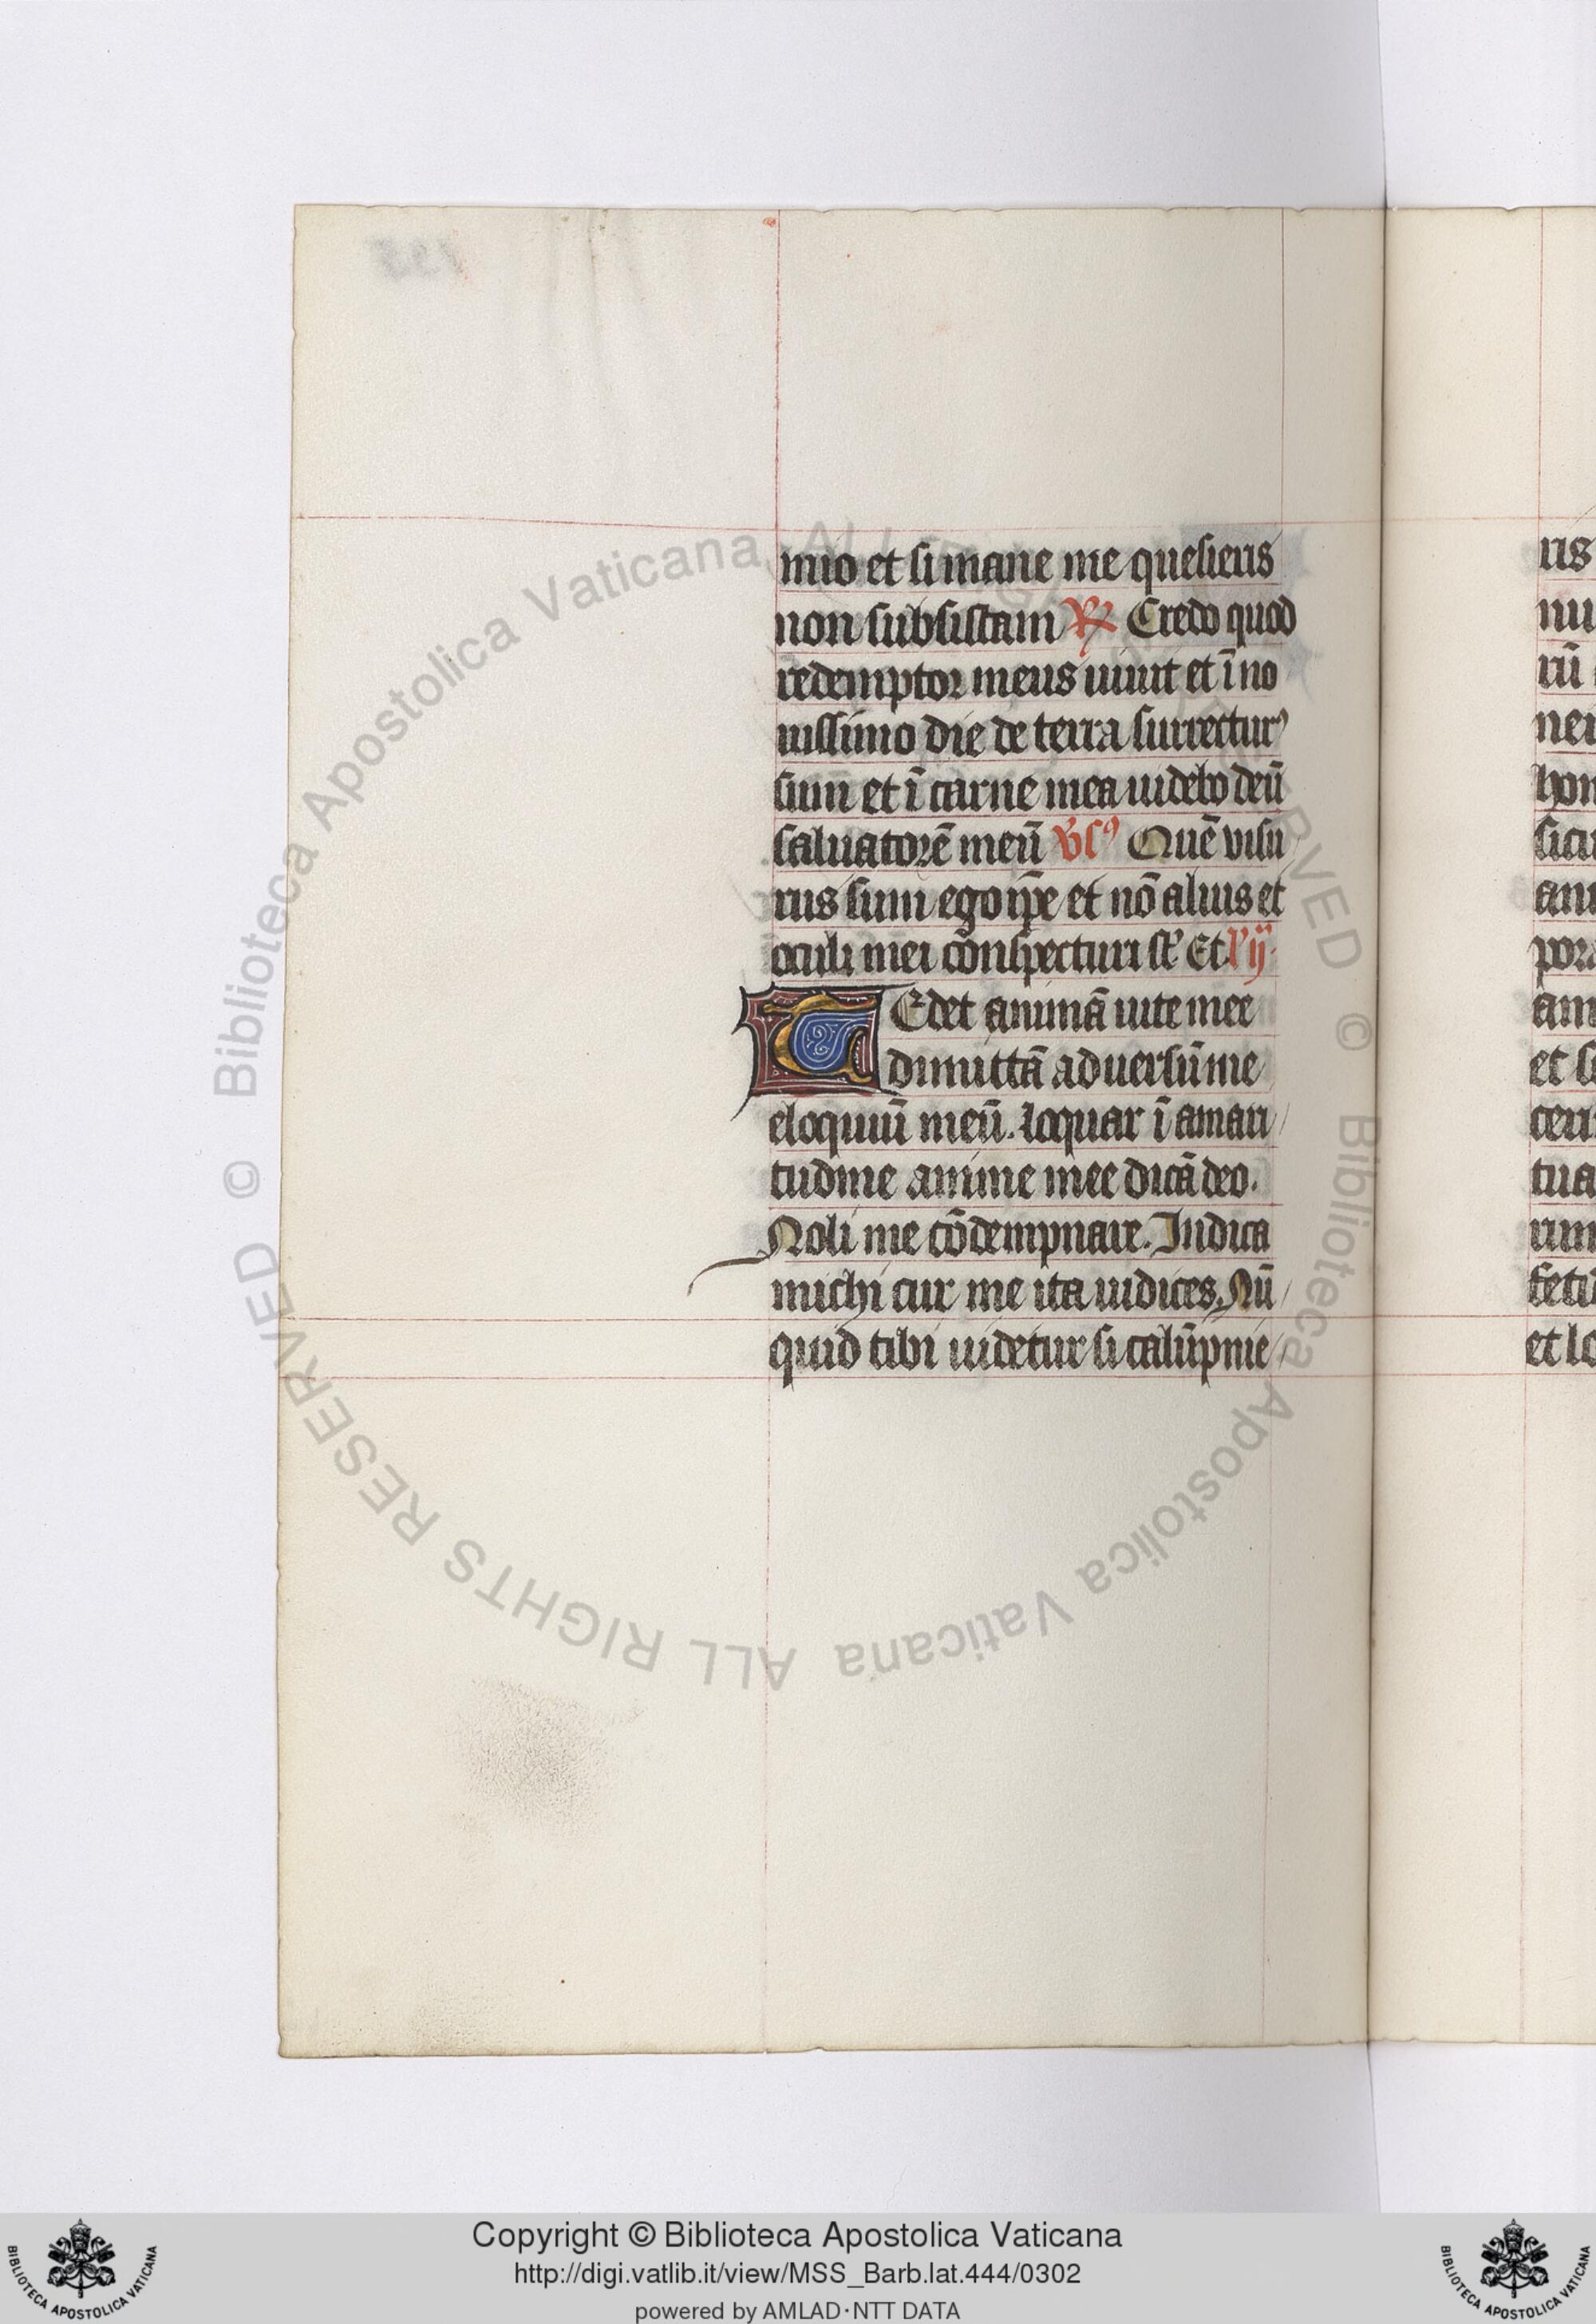 mio et si mane me quesieris
non subsistam ℟ Credo quod
redemptor meus uiuit et ī no
uissimo die de terra surrectur⁹
sum et ī carne mea uidebo deū
saluatorē meū v̄s⁹ Quē visu
rus sum ego ip̄e et nō alius et
oculi mei conspecturi st̄ Et lc̄ ij
TEdet animā uite mee
dimittā aduersū me
eloquiū meū. loquar ī amari
tudine anime mee dicā deo.
Noli me cōdempnare. Indica
michi cur me ita iudices. Nū
quid tibi uidetur si calūpnie
ris
nu
rū
ner
hom
sicu
am
pora
am
et si
cert
tua
rum
feti
et lo
Biblioteca Apostolica Vaticana ALL RIGHTS RESERVED ©
Biblioteca Apostolica Vaticana ALL RIGHTS RESERVED ©
Copyright © Biblioteca Apostolica Vaticana
http://digi.vatlib.it/view/MSS_Barb.lat.444/0302
powered by AMLAD·NTT DATA
BIBLIOTECA APOSTOLICA VATICANA
BIBLIOTECA APOSTOLICA VATICANA